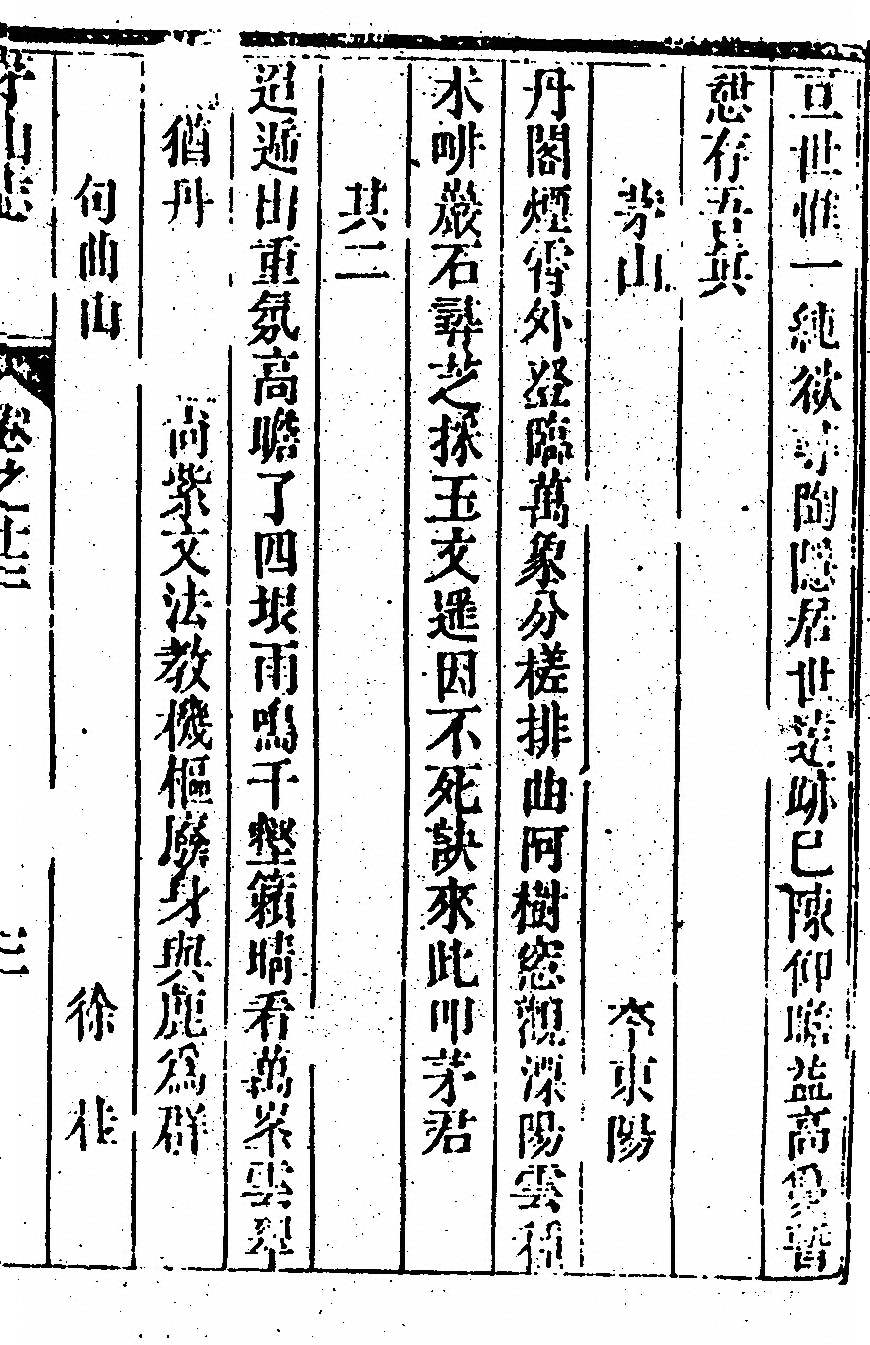 亘世惟一純欲尋陶隱居世遠跡已陳仰瞻益高象暫
憩存吾真
茅山
岑東陽
丹閣煙霄外登臨萬象分槎排曲阿樹窓覯溧陽雲種
朮畊巖石尋芝採玉文遥因不死訣來此叩茅君
其二
迢遞出重氛高瞻了四垠雨鳴千壑籟晴看萬岑雲翠
猶丹 尚紫文法教機樞廢身與鹿為群
句曲山
徐 桂
茅山志 卷之十三 三